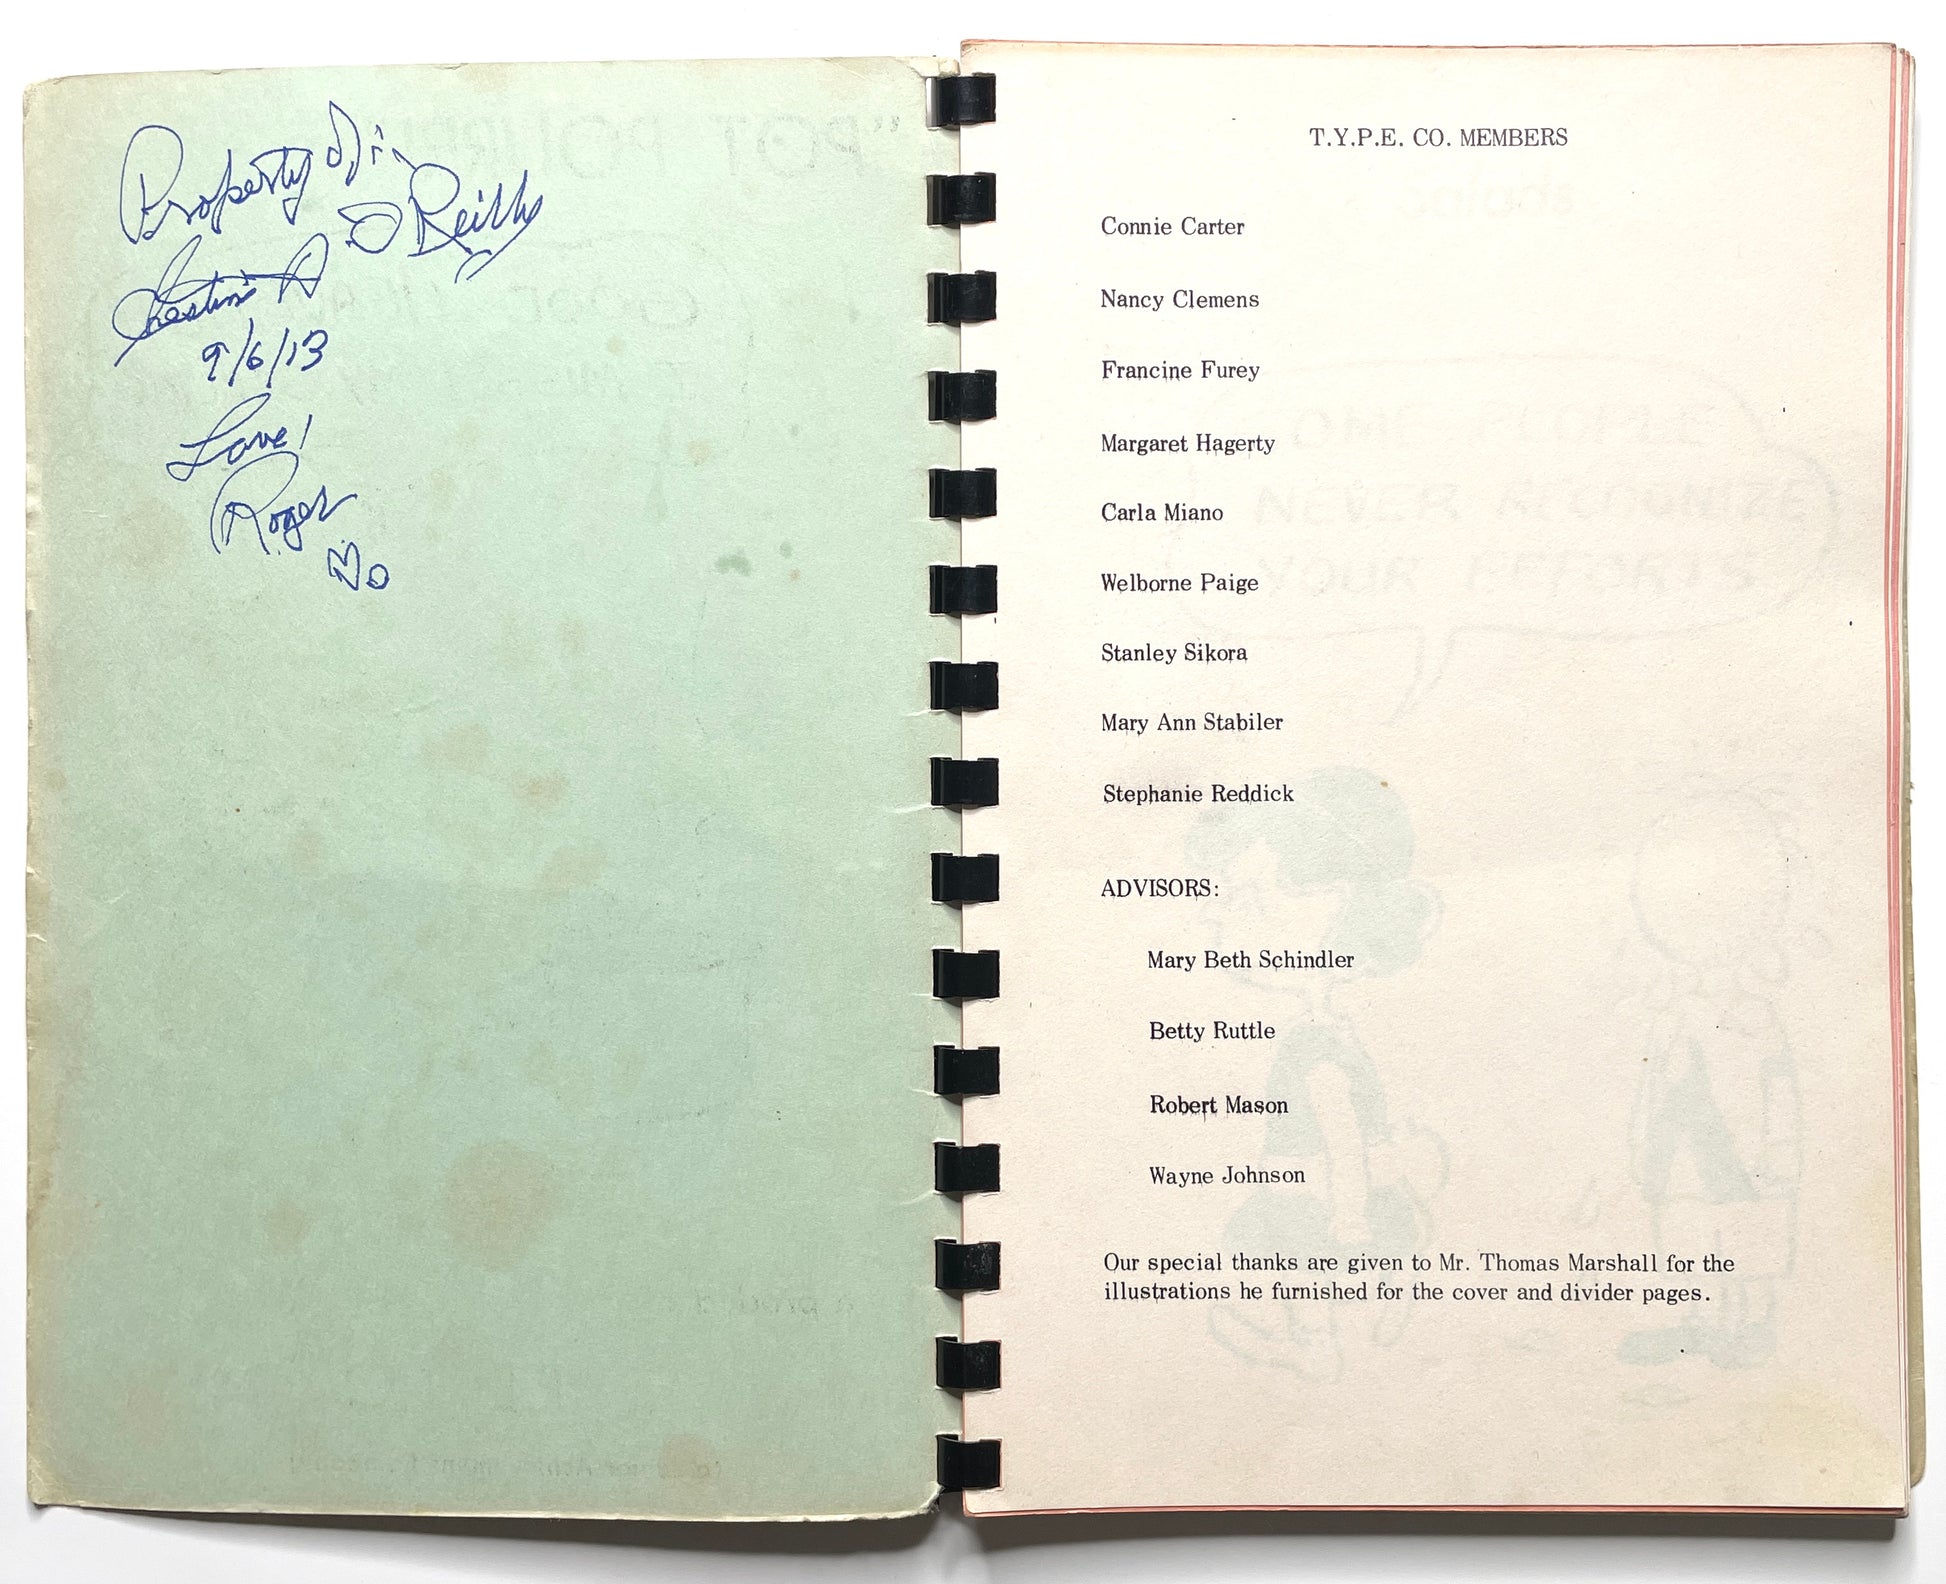 Property of:
O'Reilly
A
9/6/13
Love!
Roger
T.Y.P.E. CO. MEMBERS
Connie Carter
Nancy Clemens
Francine Furey
Margaret Hagerty
Carla Miano
Welborne Paige
Stanley Sikora
Mary Ann Stabiler
Stephanie Reddick
ADVISORS:
Mary Beth Schindler
Betty Ruttle
Robert Mason
Wayne Johnson
Our special thanks are given to Mr. Thomas Marshall for the
illustrations he furnished for the cover and divider pages.